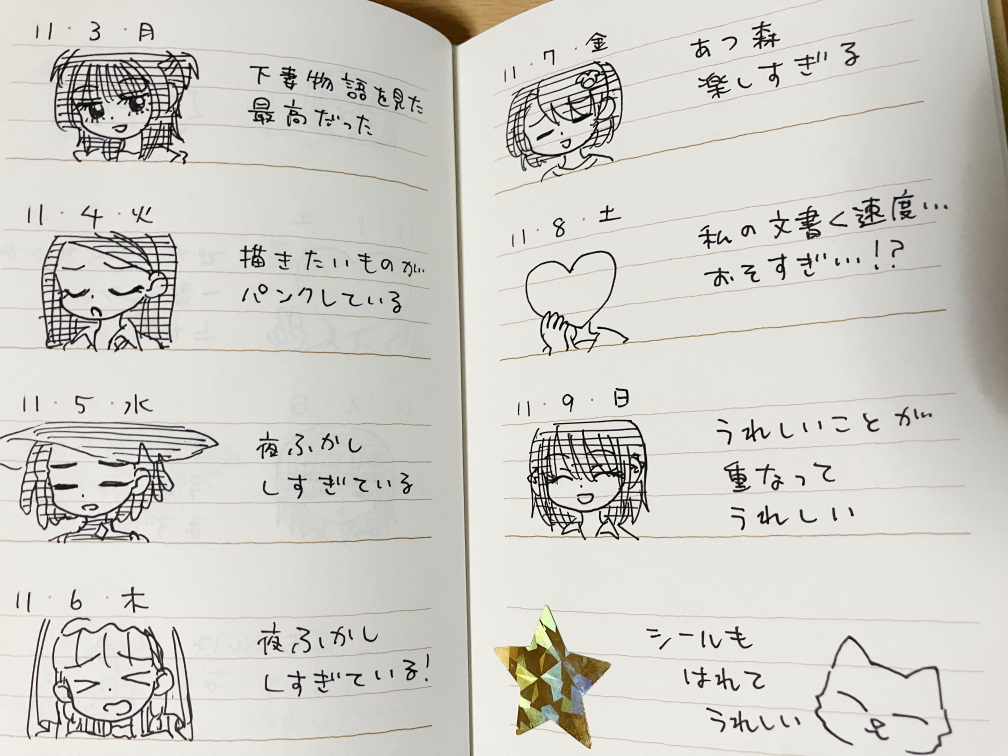 11・3・月
下妻物語を見た
最高だった
11・4・火
描きたいものが
パンクしている
11・5・水
夜ふかし
しすぎている
11・6・木
夜ふかし
しすぎている!
11・7・金
あつ森
楽しすぎる
11・8・土
私の文書く速度…
おそすぎい…!?
11・9・日
うれしいことが
重なって
うれしい
シールも
はれて
うれしい